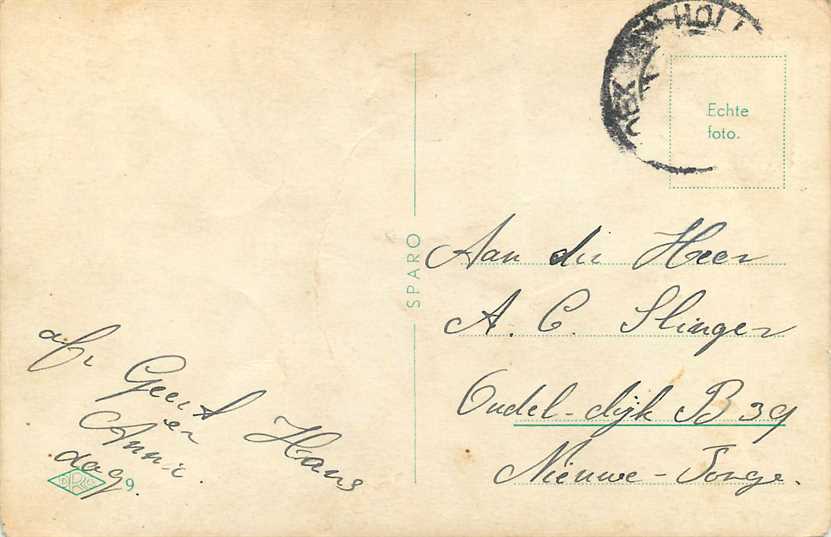 HOLL
Echte
foto.
SPARO
Aan die Heer
A. C. Slinger
Oudel-dijk B 39
Nieuwe-Tonge.
afz Geert Hans
en
Annie.
dag.
9